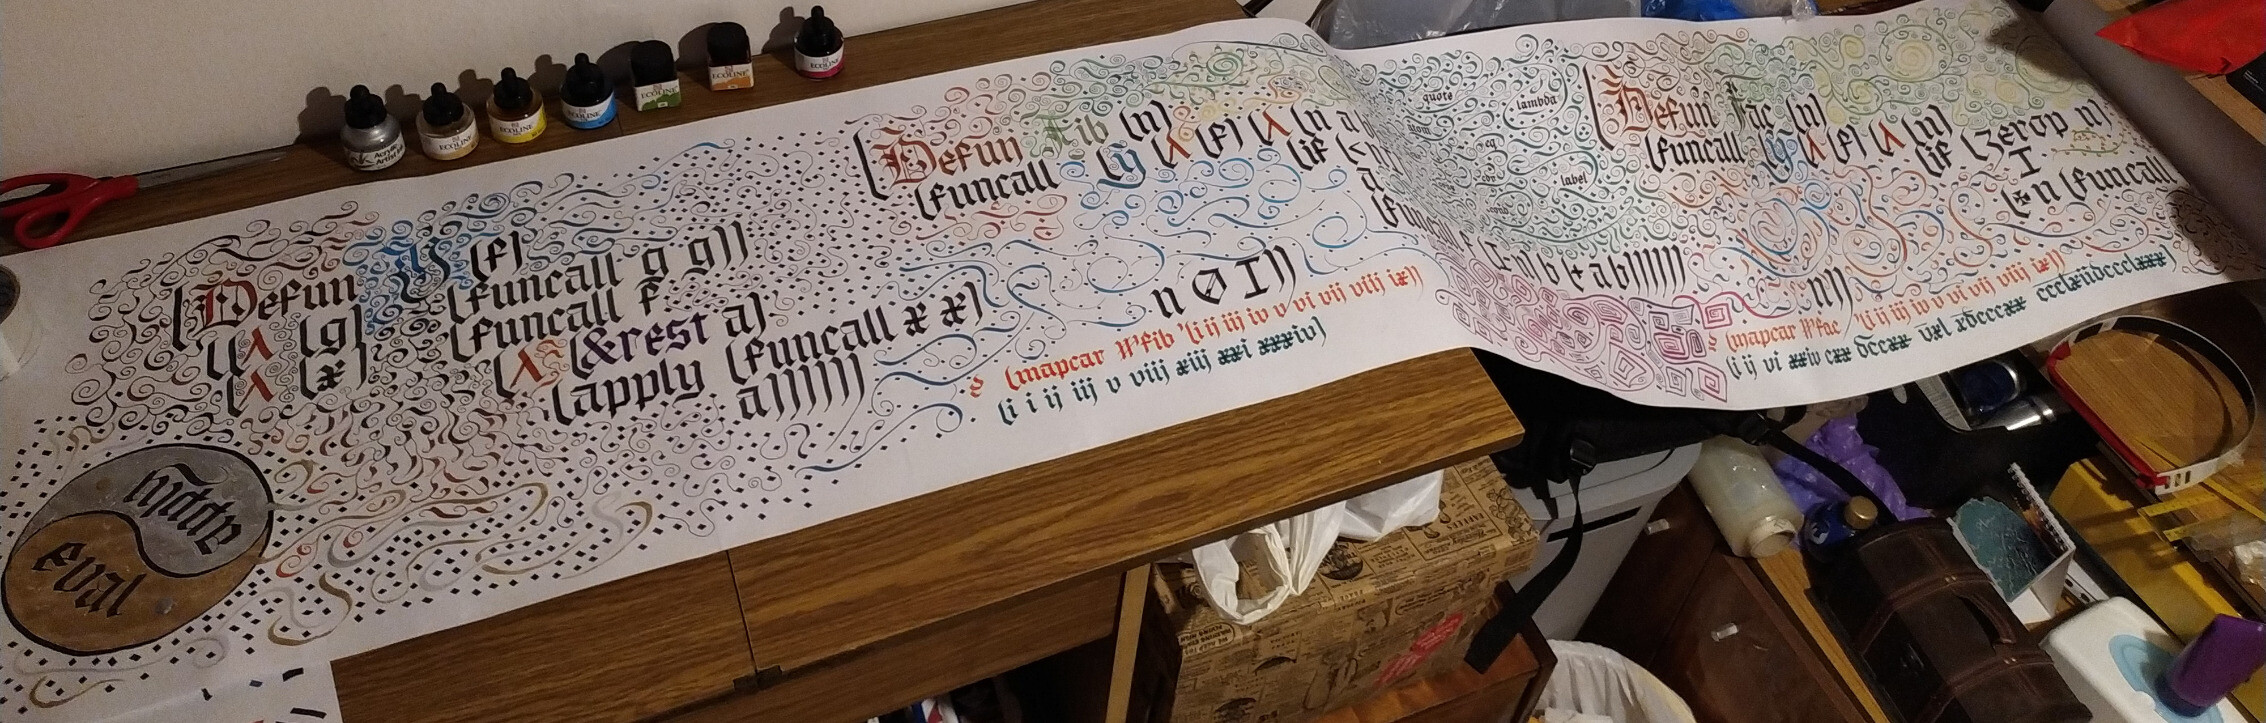 ECOLINE
ECOLINE
ECOLINE
ECOLINE
ECOLINE
Acrylic
Artist Ink
(Defun Y (f)
((λ (g) (funcall g g))
(λ (x) (funcall f
(λ (&rest a)
(apply (funcall x x)
a))))))
eval
apply
(Defun Fib (n)
(funcall (y (λ (f) (λ (n a
(if (<
a
(funcall f (b (+ a b)))))))
n 0 I))
(mapcar #'fib '(i ij iij iv v vi vij viij ix))
(i i ij iij v viij xiij xxi xxxiv)
quote
lambda
atom
eq
car
cdr
cond
label
(Defun Fac (n)
(funcall (y (λ (f) (λ (n)
(if (zerop n)
I
(* n (funcall
n))
(mapcar #'fac '(i ij iij iv v vi vij viij ix))
(i ij vi xxiv cxx dccxx